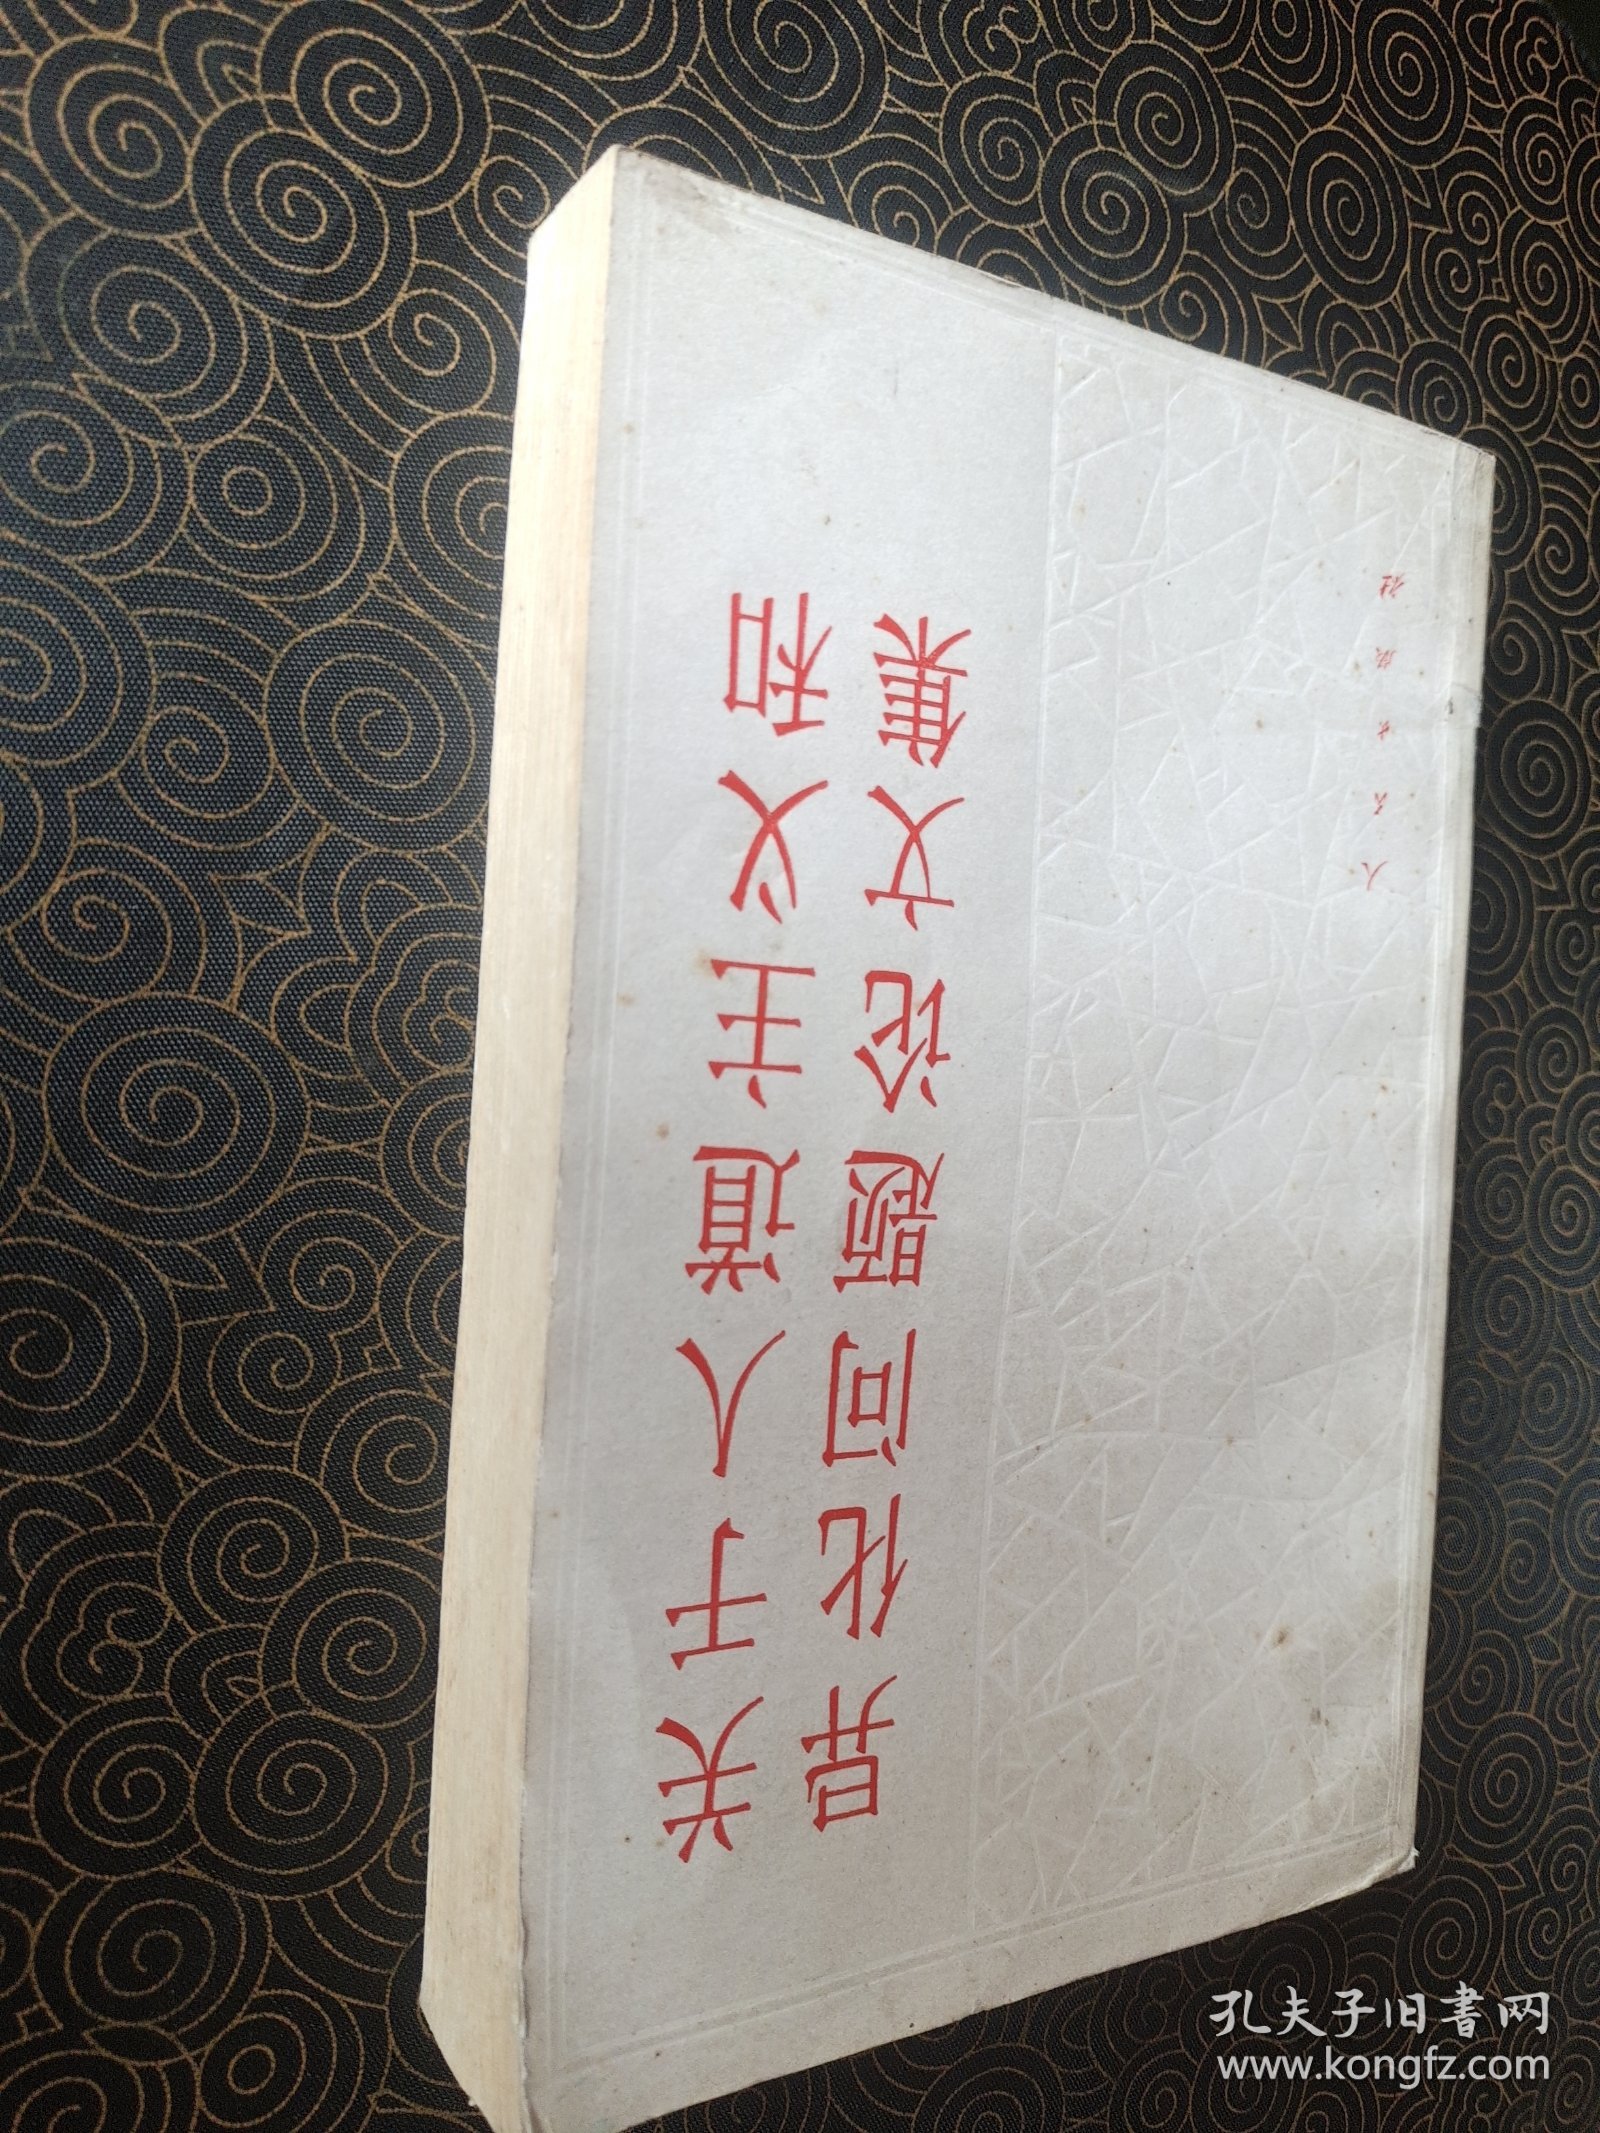 关于人道主义和
异化问题论文集
人民出版社
孔夫子旧書网
www.kongfz.com